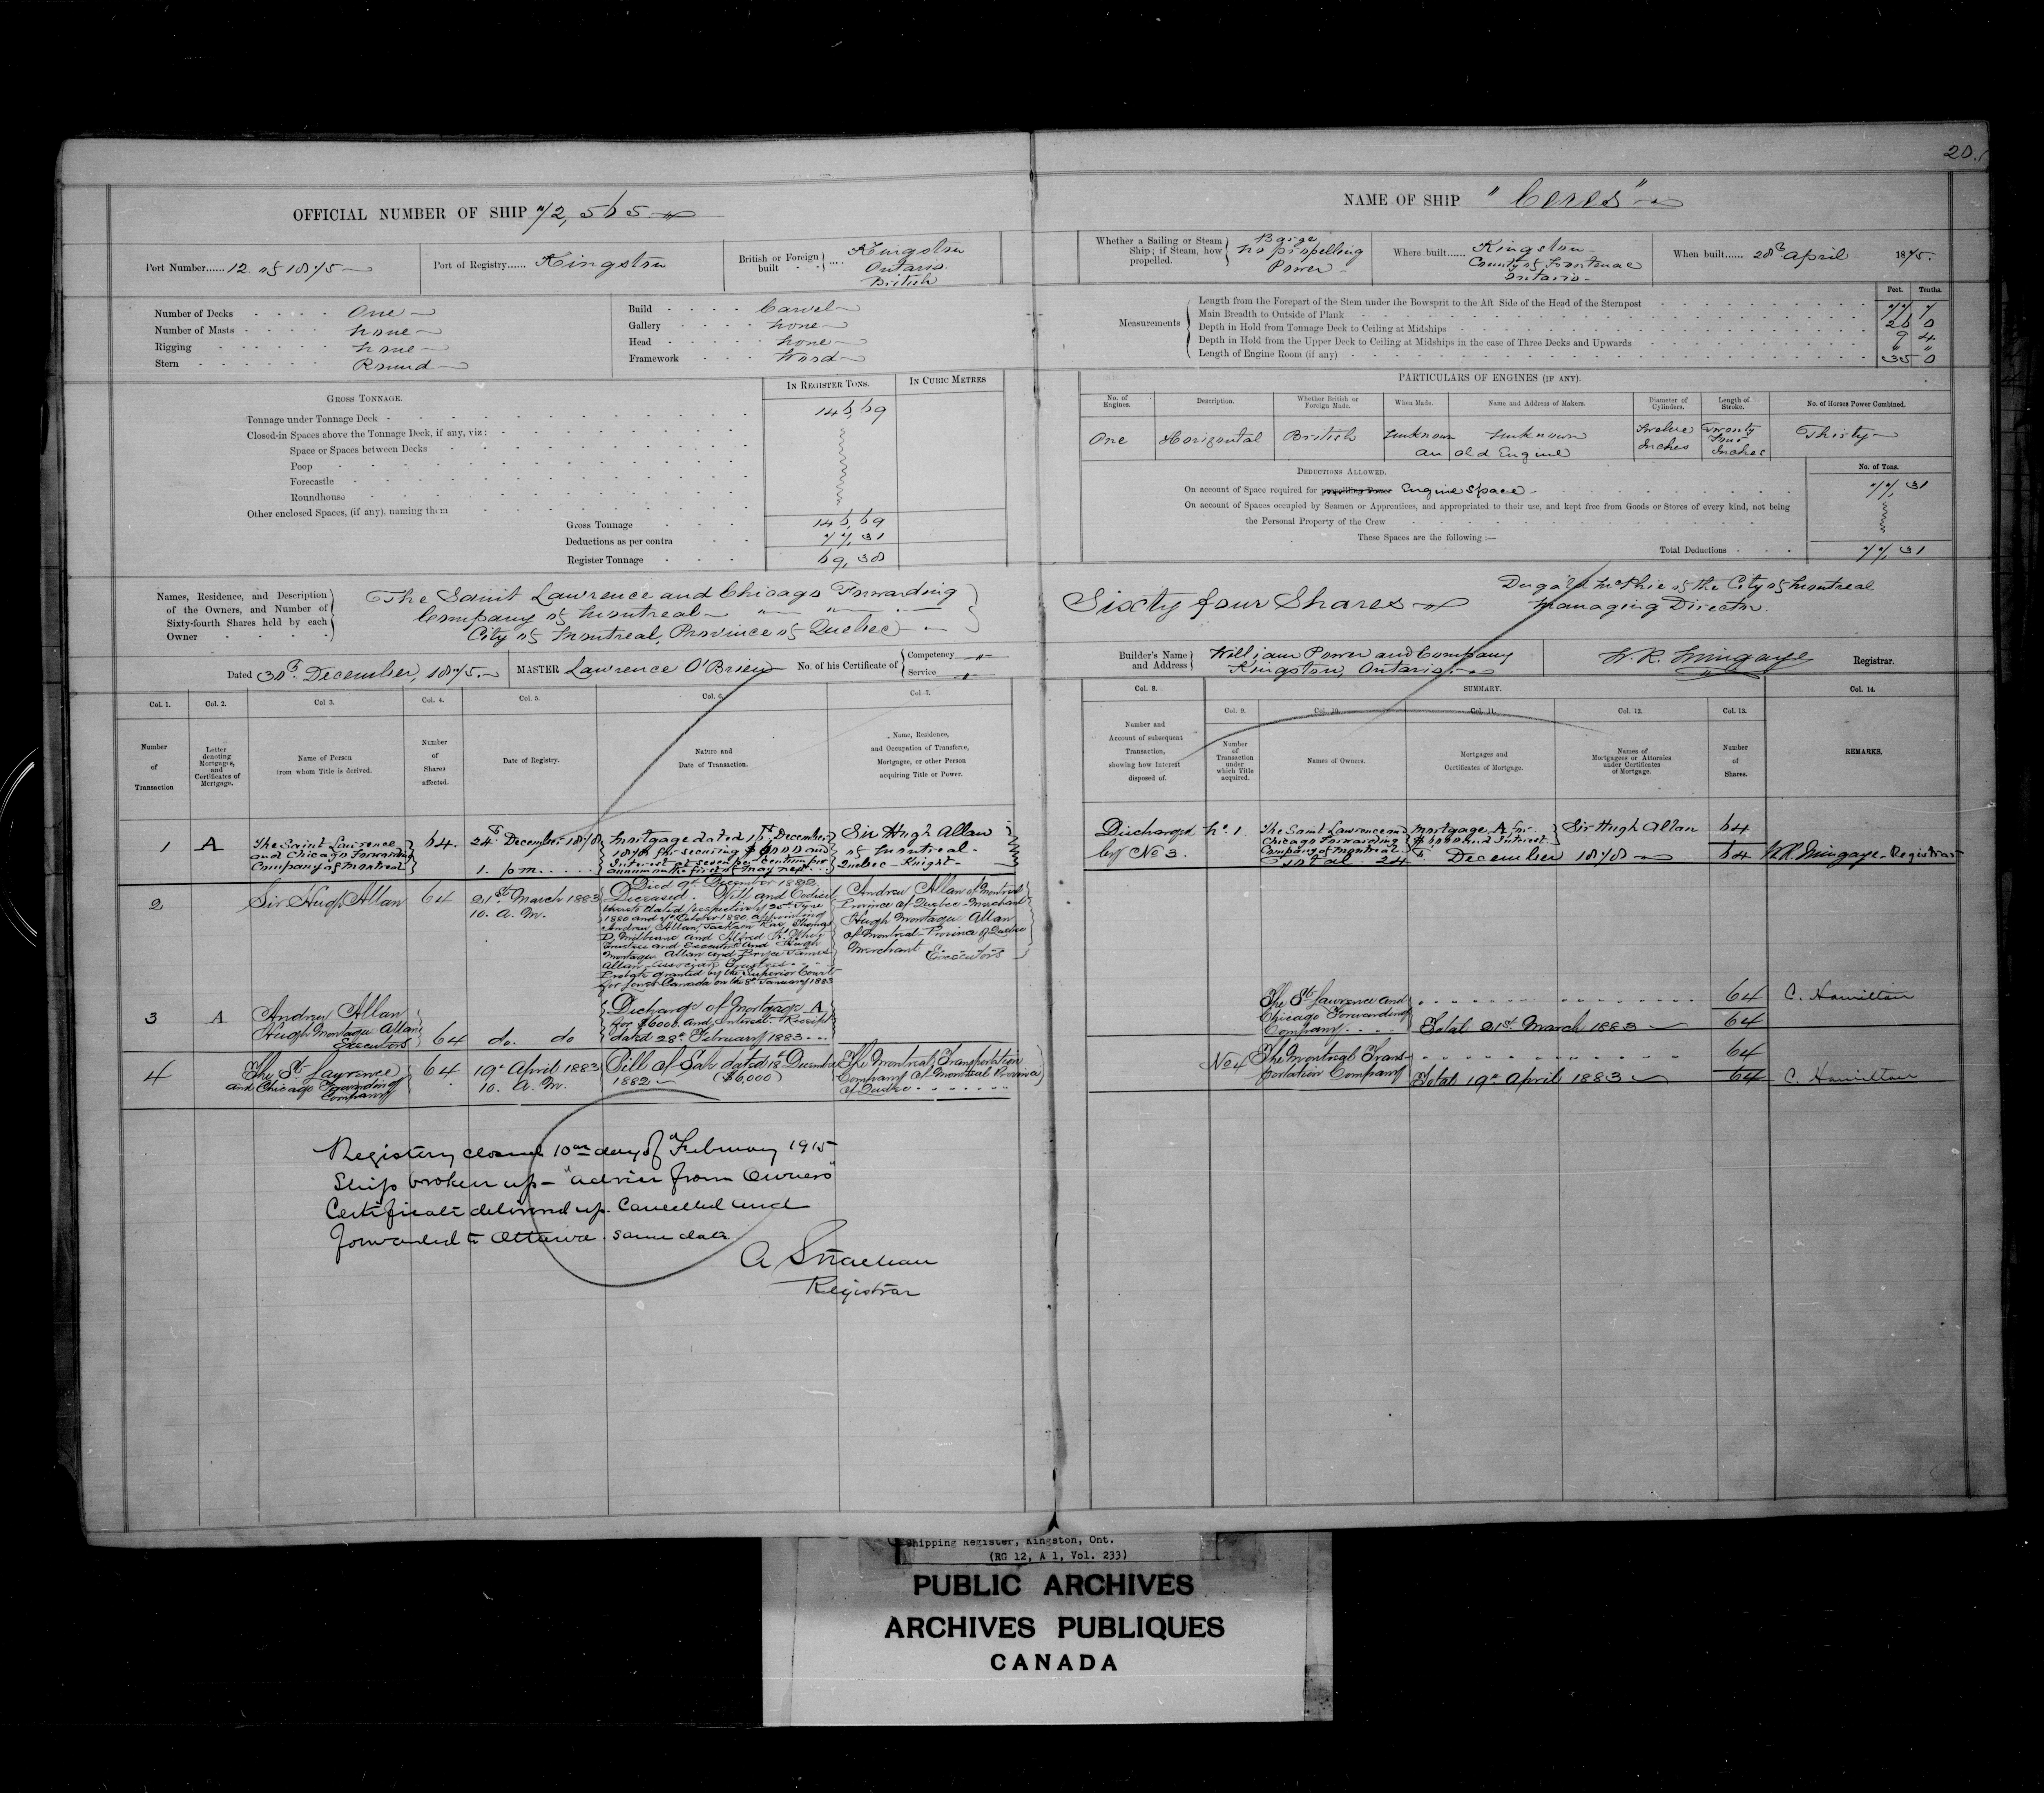 20.
OFFICIAL NUMBER OF SHIP 72,565
NAME OF SHIP "Ceres"
Port Number...... 12 of 1875
Port of Registry...... Kingston
British or Foreign built - - } ... Kingston
Ontario
British
Whether a Sailing or Steam Ship; if Steam, how propelled. { Barge
no propelling
Power
Where built...... Kingston
County of Frontenac
Ontario
When built...... 28th April 1875.
Number of Decks One
Number of Masts none
Rigging none
Stern Round
Build Carvel
Gallery none
Head none
Framework Wood
Measurements
Feet. Tenths.
Length from the Forepart of the Stem under the Bowsprit to the Aft Side of the Head of the Sternpost 77 7
Main Breadth to Outside of Plank 26 0
Depth in Hold from Tonnage Deck to Ceiling at Midships 9 4
Depth in Hold from the Upper Deck to Ceiling at Midships in the case of Three Decks and Upwards " "
Length of Engine Room (if any) 35 0
GROSS TONNAGE.
IN REGISTER TONS.
IN CUBIC METRES
Tonnage under Tonnage Deck 146,69
Closed-in Spaces above the Tonnage Deck, if any, viz:
Space or Spaces between Decks
Poop
Forecastle
Roundhouse
Other enclosed Spaces, (if any), naming them
Gross Tonnage 146,69
Deductions as per contra 77,31
Register Tonnage 69,38
PARTICULARS OF ENGINES (IF ANY).
No. of Engines.
Description.
Whether British or Foreign Made.
When Made.
Name and Address of Makers.
Diameter of Cylinders.
Length of Stroke.
No. of Horses Power Combined.
One Horizontal British Unknown Unknown Twelve Inches Twenty Four Inches Thirty
an old Engine
DEDUCTIONS ALLOWED.
No. of Tons.
On account of Space required for propelling Power Engine Space 77,31
On account of Spaces occupied by Seamen or Apprentices, and appropriated to their use, and kept free from Goods or Stores of every kind, not being
the Personal Property of the Crew
These Spaces are the following :—
Total Deductions 77,31
Names, Residence, and Description
of the Owners, and Number of
Sixty-fourth Shares held by each
Owner
The Saint Lawrence and Chicago Forwarding
Company of Montreal
City of Montreal, Province of Quebec
Sixty four Shares
Dugald McPhie of the City of Montreal
Managing Director.
Dated 30th December, 1875.
MASTER Lawrence O'Brien
No. of his Certificate of { Competency "
Service "
Builder's Name and Address } William Power and Company
Kingston, Ontario
W. R. Mingaye Registrar.
Col. 1.
Number of Transaction
Col. 2.
Letter denoting Mortgages, and Certificates of Mortgage.
Col 3.
Name of Person from whom Title is derived.
Col. 4.
Number of Shares affected.
Col. 5.
Date of Registry.
Col. 6.
Nature and Date of Transaction.
Col 7.
Name, Residence, and Occupation of Transferee, Mortgagee, or other Person acquiring Title or Power.
Col. 8.
Number and Account of subsequent Transaction, showing how Interest disposed of.
SUMMARY.
Col. 9.
Number of Transaction under which Title acquired.
Col. 10.
Names of Owners.
Col. 11.
Mortgages and Certificates of Mortgage.
Col. 12.
Names of Mortgagees or Attornies under Certificates of Mortgage.
Col. 13.
Number of Shares.
Col. 14.
REMARKS.
1 A
The Saint Lawrence
and Chicago Forwarding
Company of Montreal
64.
24th December 1878
1. pm.
Mortgage dated 11th December
1878 for securing $6000 and
Interest at seven per centum per
annum on the first of May next
Sir Hugh Allan
of Montreal
Quebec - Knight -
Discharged
by No 3.
No. 1
The Saint Lawrence and
Chicago Forwarding
Company of Montreal
Mortgage A for
$6000 and Interest
Sir Hugh Allan
64
Total 24th December 1878 64
W.R. Mingaye - Registrar
2
Sir Hugh Allan
64
21st March 1883
10. A. M.
Died 9th December 1882
Deceased. Will and Codicil
thereto dated respectively 25th June
1880 and October 1880 appointing
Andrew Allan, Jackson Rae, Thomas
D. Milburne and Alfred K. White
Trustees and Executors and Hugh
Montagu Allan and Bryce James
Allan, Associate Trustees
Probate granted by the Superior Court
for Lower Canada on the 8th January 1883
Andrew Allan of Montreal
Province of Quebec - Merchant
Hugh Montagu Allan
of Montreal - Province of Quebec
Merchant Executors
3 A
Andrew Allan
Hugh Montagu Allan
Executors
64 do. do
Discharge of Mortgage A
for $6000. and Interest. Receipt
dated 28th February 1883
The St. Lawrence and
Chicago Forwarding
Company
64 C. Hamilton
Total 21st March 1883 64
4
The St. Lawrence
and Chicago Forwarding
Company
64
19th April 1883
10. A. M.
Bill of Sale dated 18th December
1882 ($6,000)
The Montreal Transportation
Company of Montreal Province
of Quebec
No 4
The Montreal Trans-
portation Company
64
Total 19th April 1883 64 C. Hamilton
Registry closed 10th day of February 1915
Ship broken up - "advice from Owners"
Certificate delivered up. Cancelled and
forwarded to Ottawa. same date.
A Strachan
Registrar
Shipping Register, Kingston, Ont.
(RG 12, A 1, Vol. 233)
PUBLIC ARCHIVES
ARCHIVES PUBLIQUES
CANADA